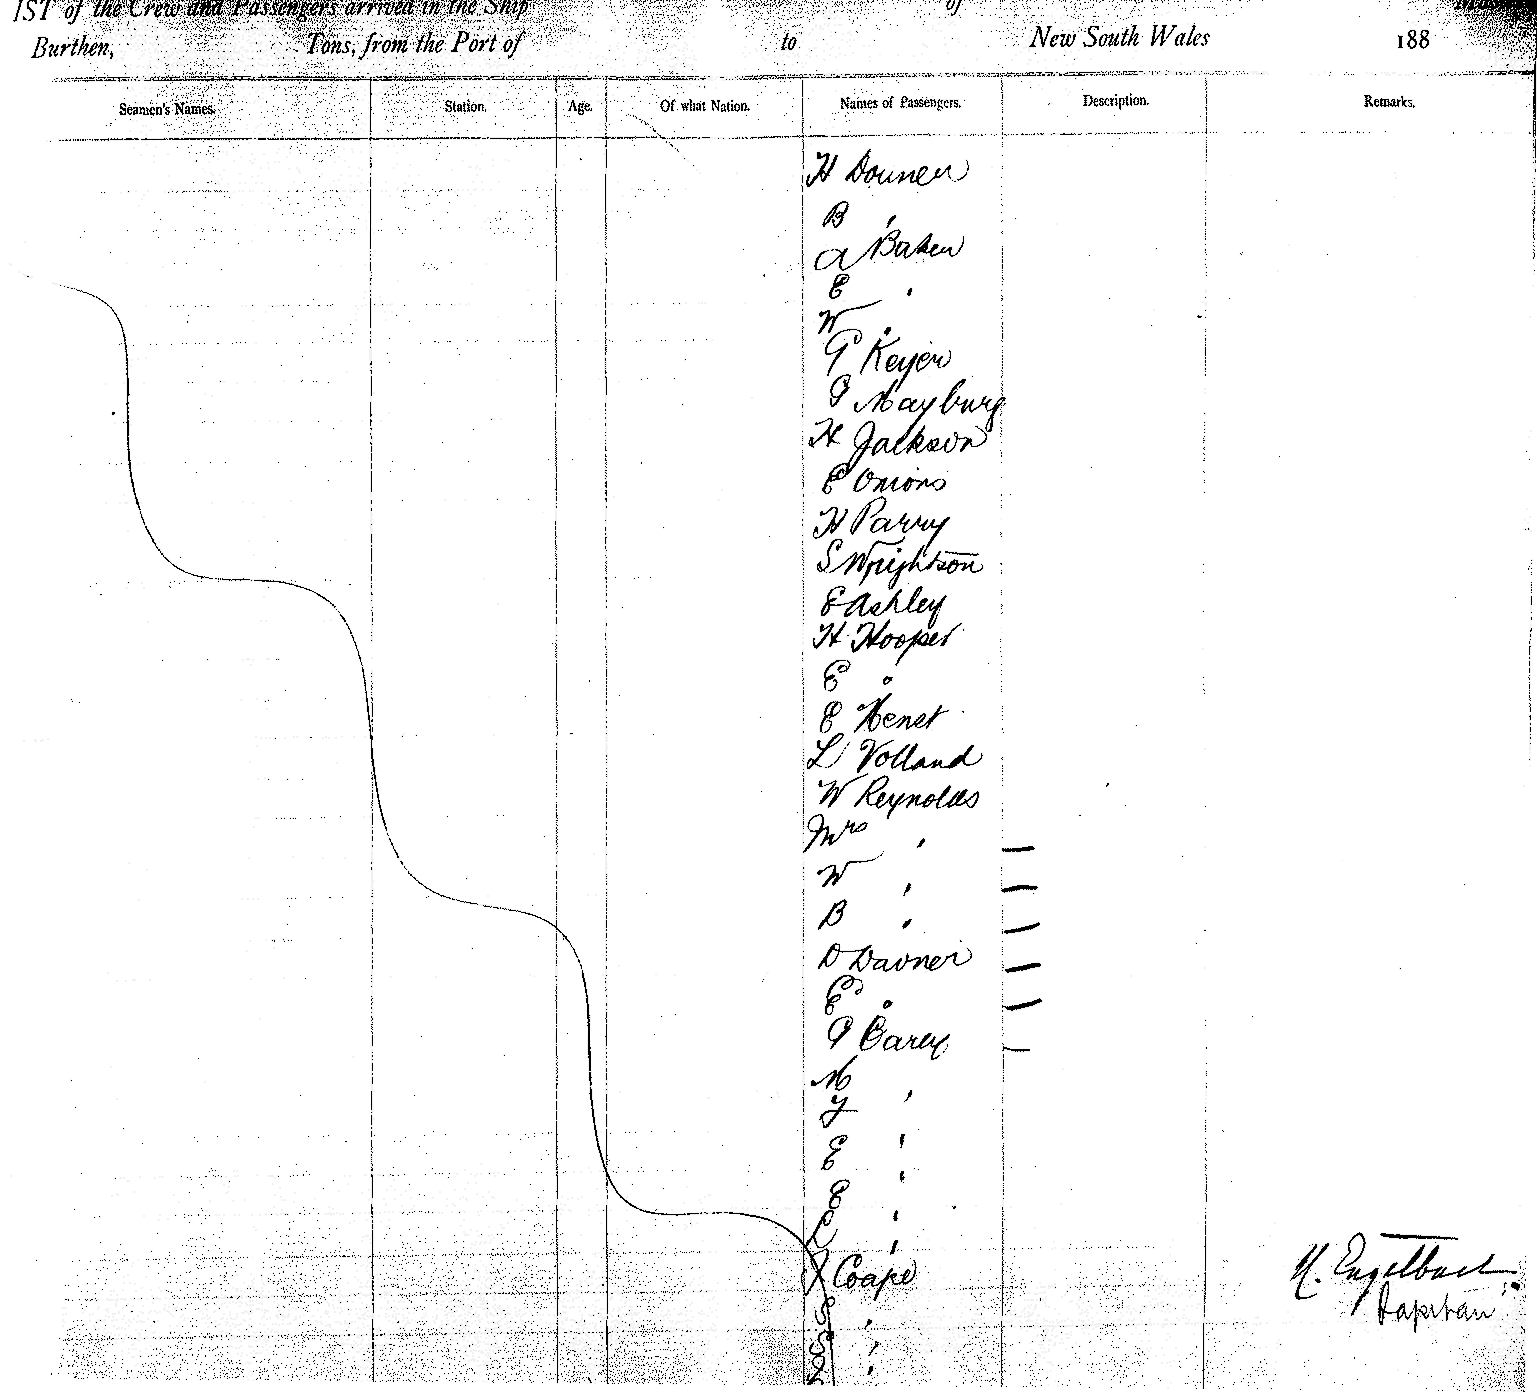 IST of the Crew and Passengers arrived in the Ship of
Burthen, Tons, from the Port of to New South Wales 188
Seamen's Names. Station. Age. Of what Nation. Names of Passengers. Description. Remarks.
H Downer
B "
A Baker
E "
W "
G Keyer
G Mayburg
H Jackson
E Onions
H Parry
S Wrightson
E Ashley
H Hooper
E "
E Henet
L Volland
W Reynolds
Mrs "
W "
B "
D Davner
E "
G Carey
M "
J "
E "
E "
L "
Coape
H. Engelbart
Capitan